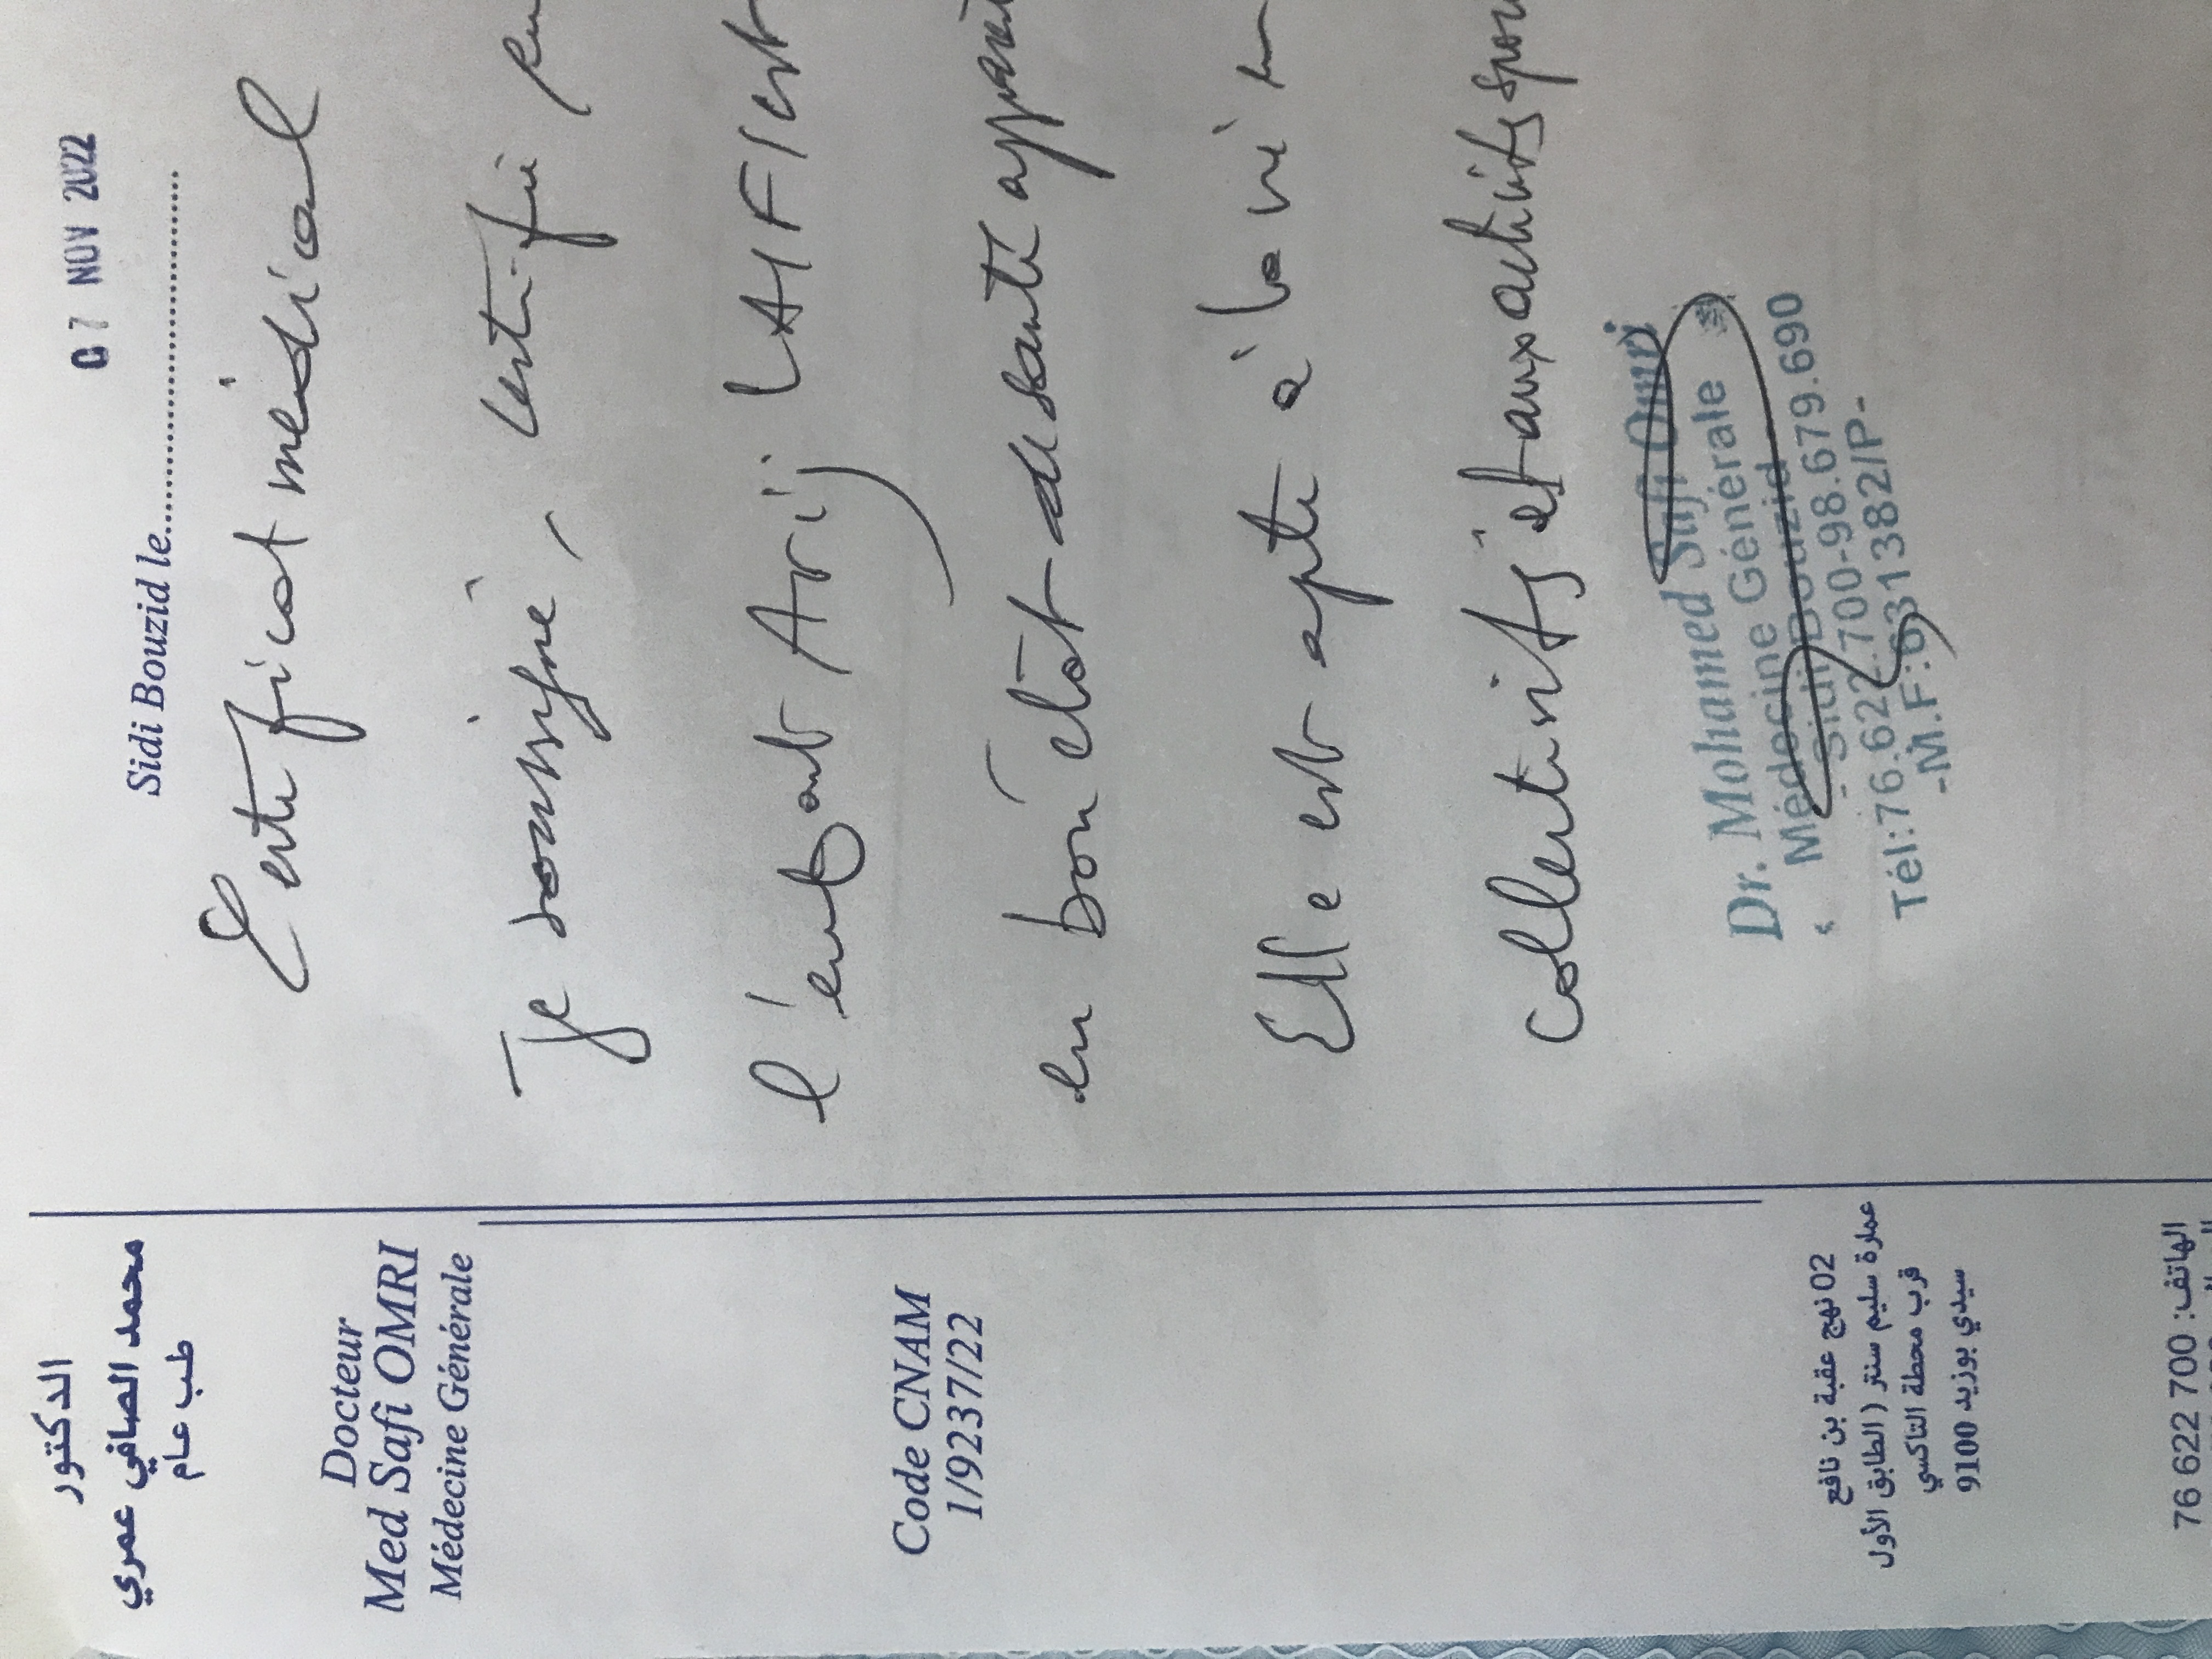 الدكتور
محمد الصافي عمري
طب عام
Docteur
Med Safi OMRI
Médecine Générale
Code CNAM
1/9237/22
02 نهج عقبة بن نافع
عمارة سليم سنتر ( الطابق الأول
قرب محطة التاكسي
سيدي بوزيد 9100
الهاتف: 700 622 76
07 NOV 2022
Sidi Bouzid le
Certificat médical
Je soussigné, certifie
l'enfant Arij LAIFI est
en bon état de santé
Elle est apte à la vie
collectivités et aux activités
Dr. Mohamed Safi Omri
Médecine Générale
- Sidi Bouzid -
Tél:76.622.700-98.679.690
-M.F:631382/P-